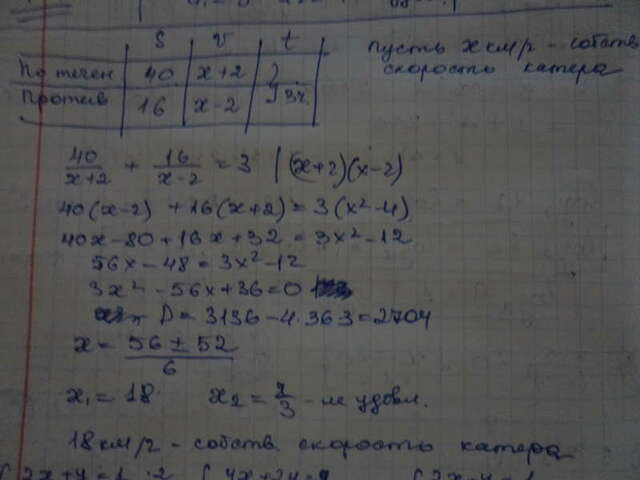 S v t
По течен 40 x+2 }
Против 16 x-2 3ч.
пусть x км/г - собств
скорость катера
40/(x+2) + 16/(x-2) = 3 |(x+2)(x-2)
40(x-2) +16(x+2)=3(x²-4)
40x-80+16x+32=3x²-12
56x-48=3x²-12
3x²-56x+36=0
D=3136-4·36·3=2704
x= (56±52)/6
x₁=18 x₂=2/3 - не удовл.
18 км/г - собств. скорость катера